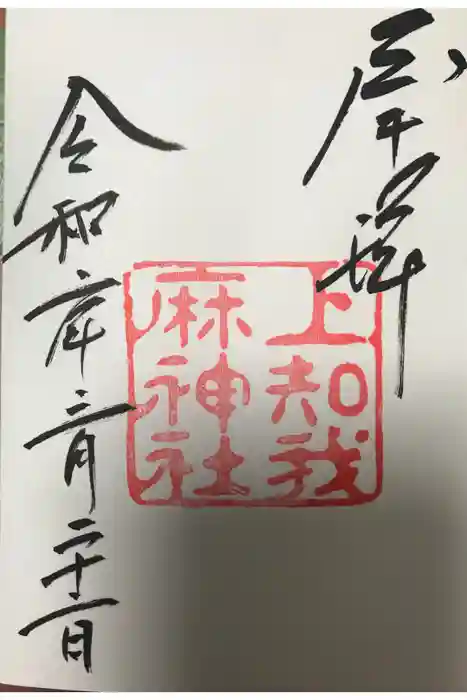 奉拝
上知我
麻神社
令和六年三月二十一日